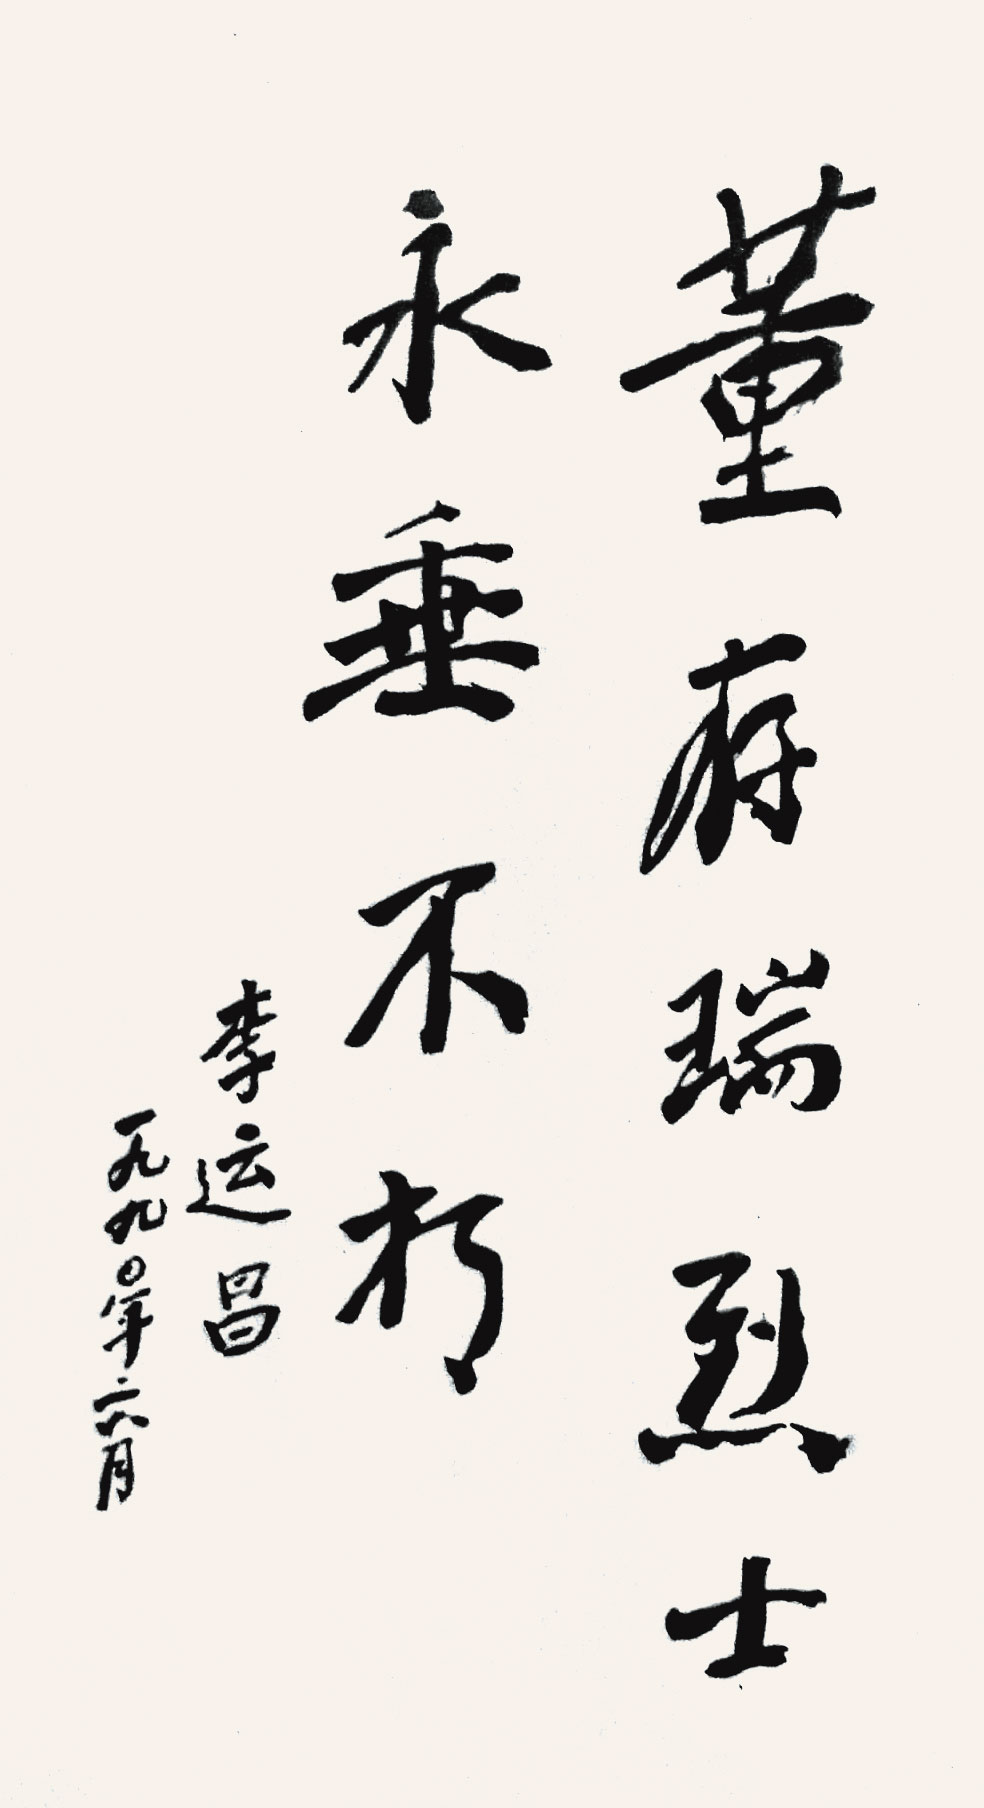 董存瑞烈士
永垂不朽
李运昌
一九九〇年六月